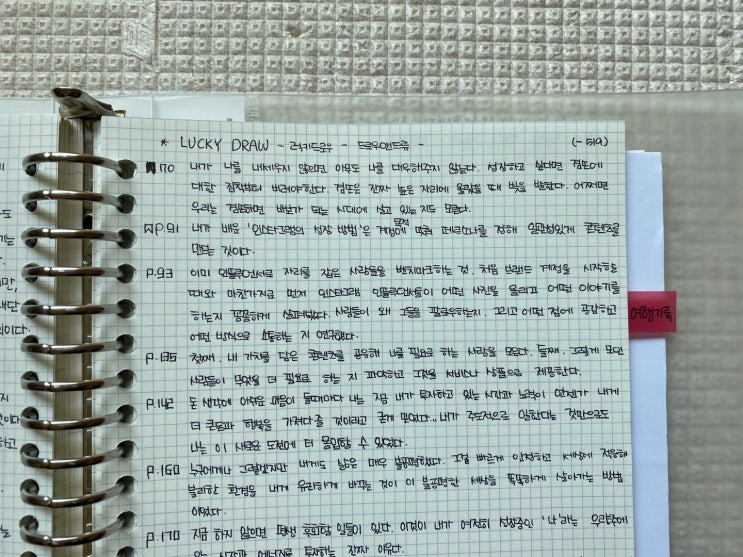 * LUCKY DRAW - 러키드로우 - 드로우앤드류 - (-5/9)
P.70 내가 나를 내세우지 않으면 아무도 나를 대우해주지 않는다. 성장하고 싶다면 겸손에
대한 집착부터 버려야한다. 겸손은 진짜 높은 자리에 올랐을 때 빛을 발한다. 어쩌면
우리는 겸손하면 바보가 되는 시대에 살고 있는 지도 모른다.
P.91 내가 배운 '인스타그램의 성장 방법'은 계정 목적에 맞춰 페르소나를 정해 일관성있게 콘텐츠를
만드는 것이다.
P.93 이미 인플루언서로 자리를 잡은 사람들을 벤치마크하는 것. 처음 브랜드 계정을 시작할
때와 마찬가지로 먼저 인스타그램 인플루언서들이 어떤 사진을 올리고 어떤 이야기를
하는지 꼼꼼하게 살펴봤다. 사람들이 왜 그들을 팔로우하는지, 그리고 어떤 점에 공감하고
어떤 방식으로 소통하는 지 연구했다.
P.135 첫째, 내 가치를 담은 콘텐츠를 공유해 나를 필요로 하는 사람을 모은다. 둘째, 그렇게 모인
사람들이 무엇을 더 필요로 하는 지 파악하고 그것을 서비스나 상품으로 제공한다.
P.142 돈 생각에 아쉬운 마음이 들때마다 나는 지금 내가 투자하고 있는 시간과 노력이 언젠가 내게
더 큰돈과 행복을 가져다줄 것이라고 굳게 믿었다.. 내가 주도적으로 일한다는 것만으로도
나는 이 새로운 도전에 더 몰입할 수 있었다.
P.160 누구에게나 그렇겠지만 내게도 삶은 매우 불공평했다. 그걸 빠르게 인정하고 세상에 적응해
불리한 환경을 내게 유리하게 바꾸는 것이 이 불공평한 세상을 똑똑하게 살아가는 방법
이었다.
P.170 지금 하지 않으면 평생 후회할 일들이 있다. 이것이 내가 여전히 성장중인 '나'라는 우량주에
시간과 에너지를 투자하는 진짜 이유다.
여행기록